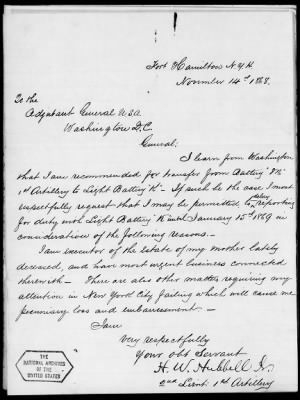 Fort Hamilton N.Y.H.
November 14th 1868.
To the
Adjutant General U.S.A.
Washington D.C.
General:
I learn from Washington
that I am recommended for transfer from Battery
1st Artillery to Light Battery "K" - If such be the case I most
respectfully request that I may be permitted to delay reporting
for duty with Light Battery "K" until January 15th 1869 in
consideration of the following reasons. -
I am executor of the Estate of my mother lately
deceased, and have most urgent business connected
therewith - There are also other matters requiring my
attention in New York City failing which will cause me
pecuniary loss and embarrassment. -
I am
Very respectfully
Your obt Servant
H. W. Hubbell Jr.
2nd Lieut: 1st Artillery
THE
NATIONAL ARCHIVES
OF THE
UNITED STATES